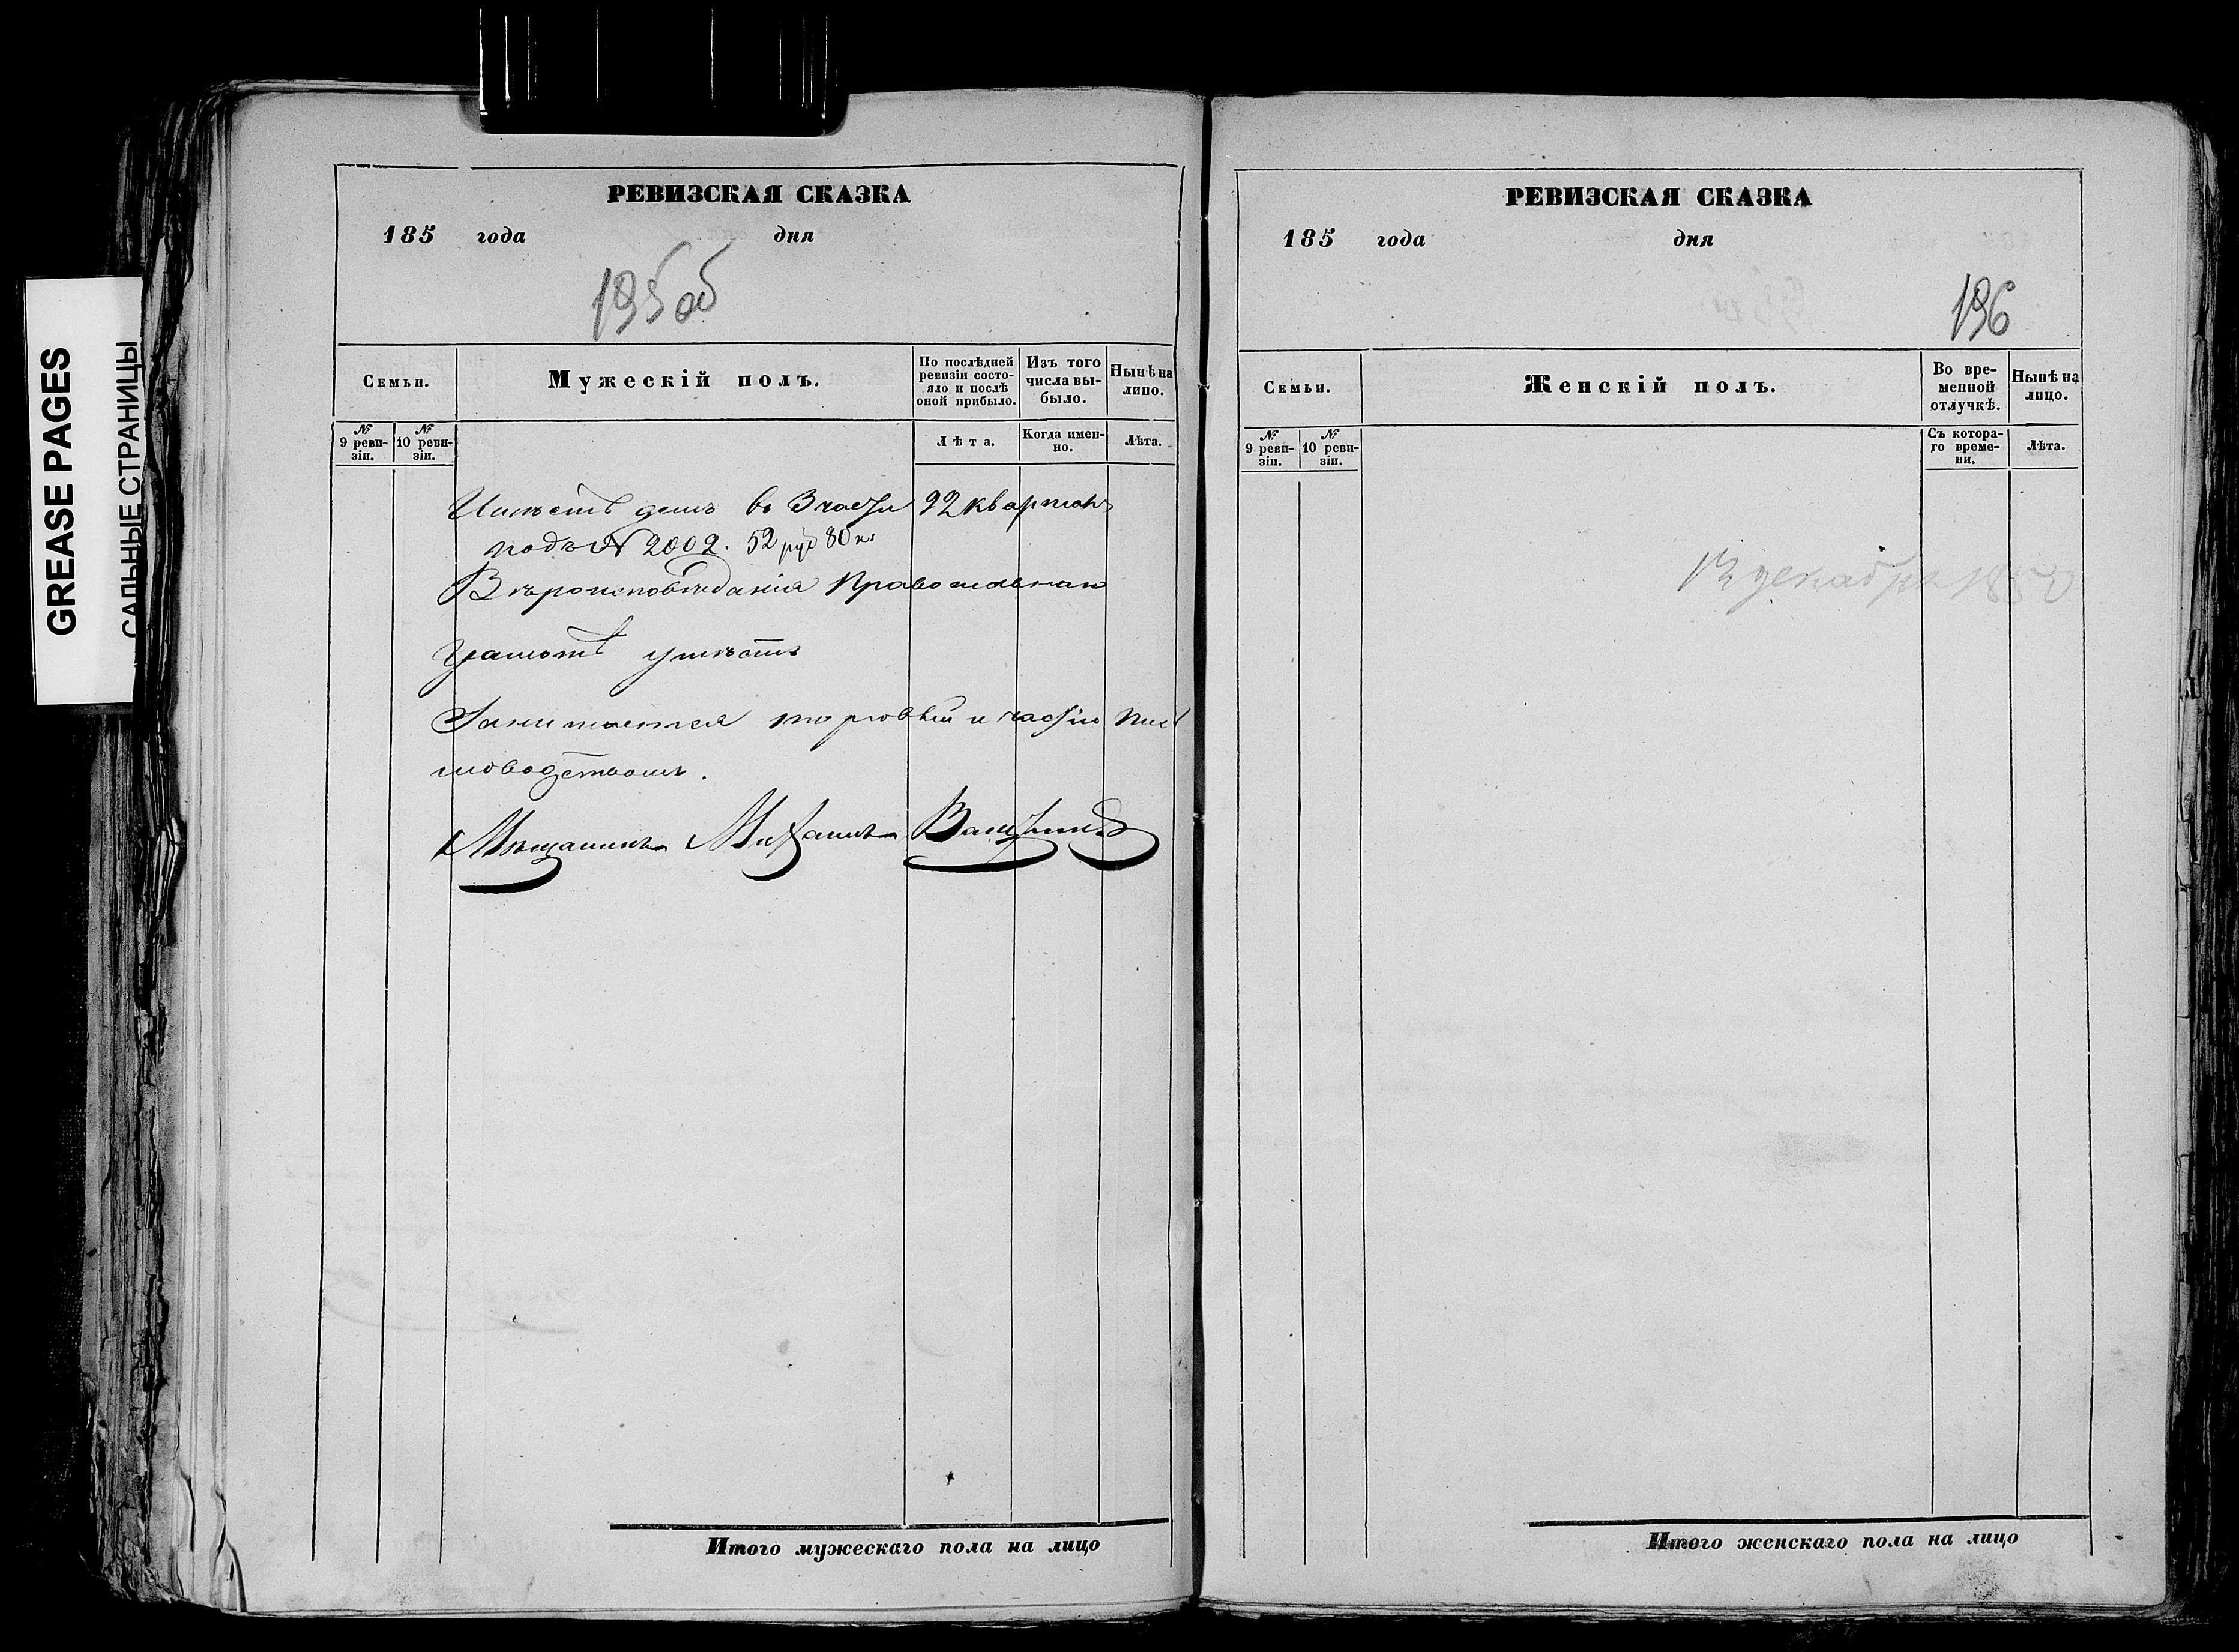 GREASE PAGES
САЛЬНЫЕ СТРАНИЦЫ
РЕВИЗСКАЯ СКАЗКА
185 года дня
195об
Семьи.
Мужескій полъ.
По послѣдней ревизіи состо-
яло и послѣ оной прибыло.
Изъ того числа вы-
было.
Нынѣ на лицо.
№ 9 реви-
зіи.
№ 10 реви-
зіи.
Лѣта.
Когда имен-
но.
Лѣта.
Имѣетъ домъ въ 3 части 22 квартала
подъ № 2002. 52 руб 80 к.
Вѣроисповѣданія Православнаго
Грамотѣ умѣетъ
Занимается торговлей и частію пче
ловодствомъ.
Мѣщанинъ Михаилъ
РЕВИЗСКАЯ СКАЗКА
185 года дня
196
Семьи.
Женскій полъ.
Во вре-
менной
отлучкѣ.
Нынѣ на
лицо.
№ 9 реви-
зіи.
№ 10 реви-
зіи.
Съ котора-
го време-
ни.
Лѣта.
декабря
Итого мужескаго пола на лицо
Итого женскаго пола на лицо